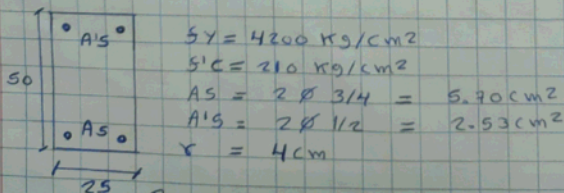 A'S
50
AS
25
fY = 4200 Kg/cm2
f'c = 210 Kg/cm2
AS = 2 Ø 3/4 = 5.70 cm2
A'S = 2 Ø 1/2 = 2.53 cm2
r = 4cm